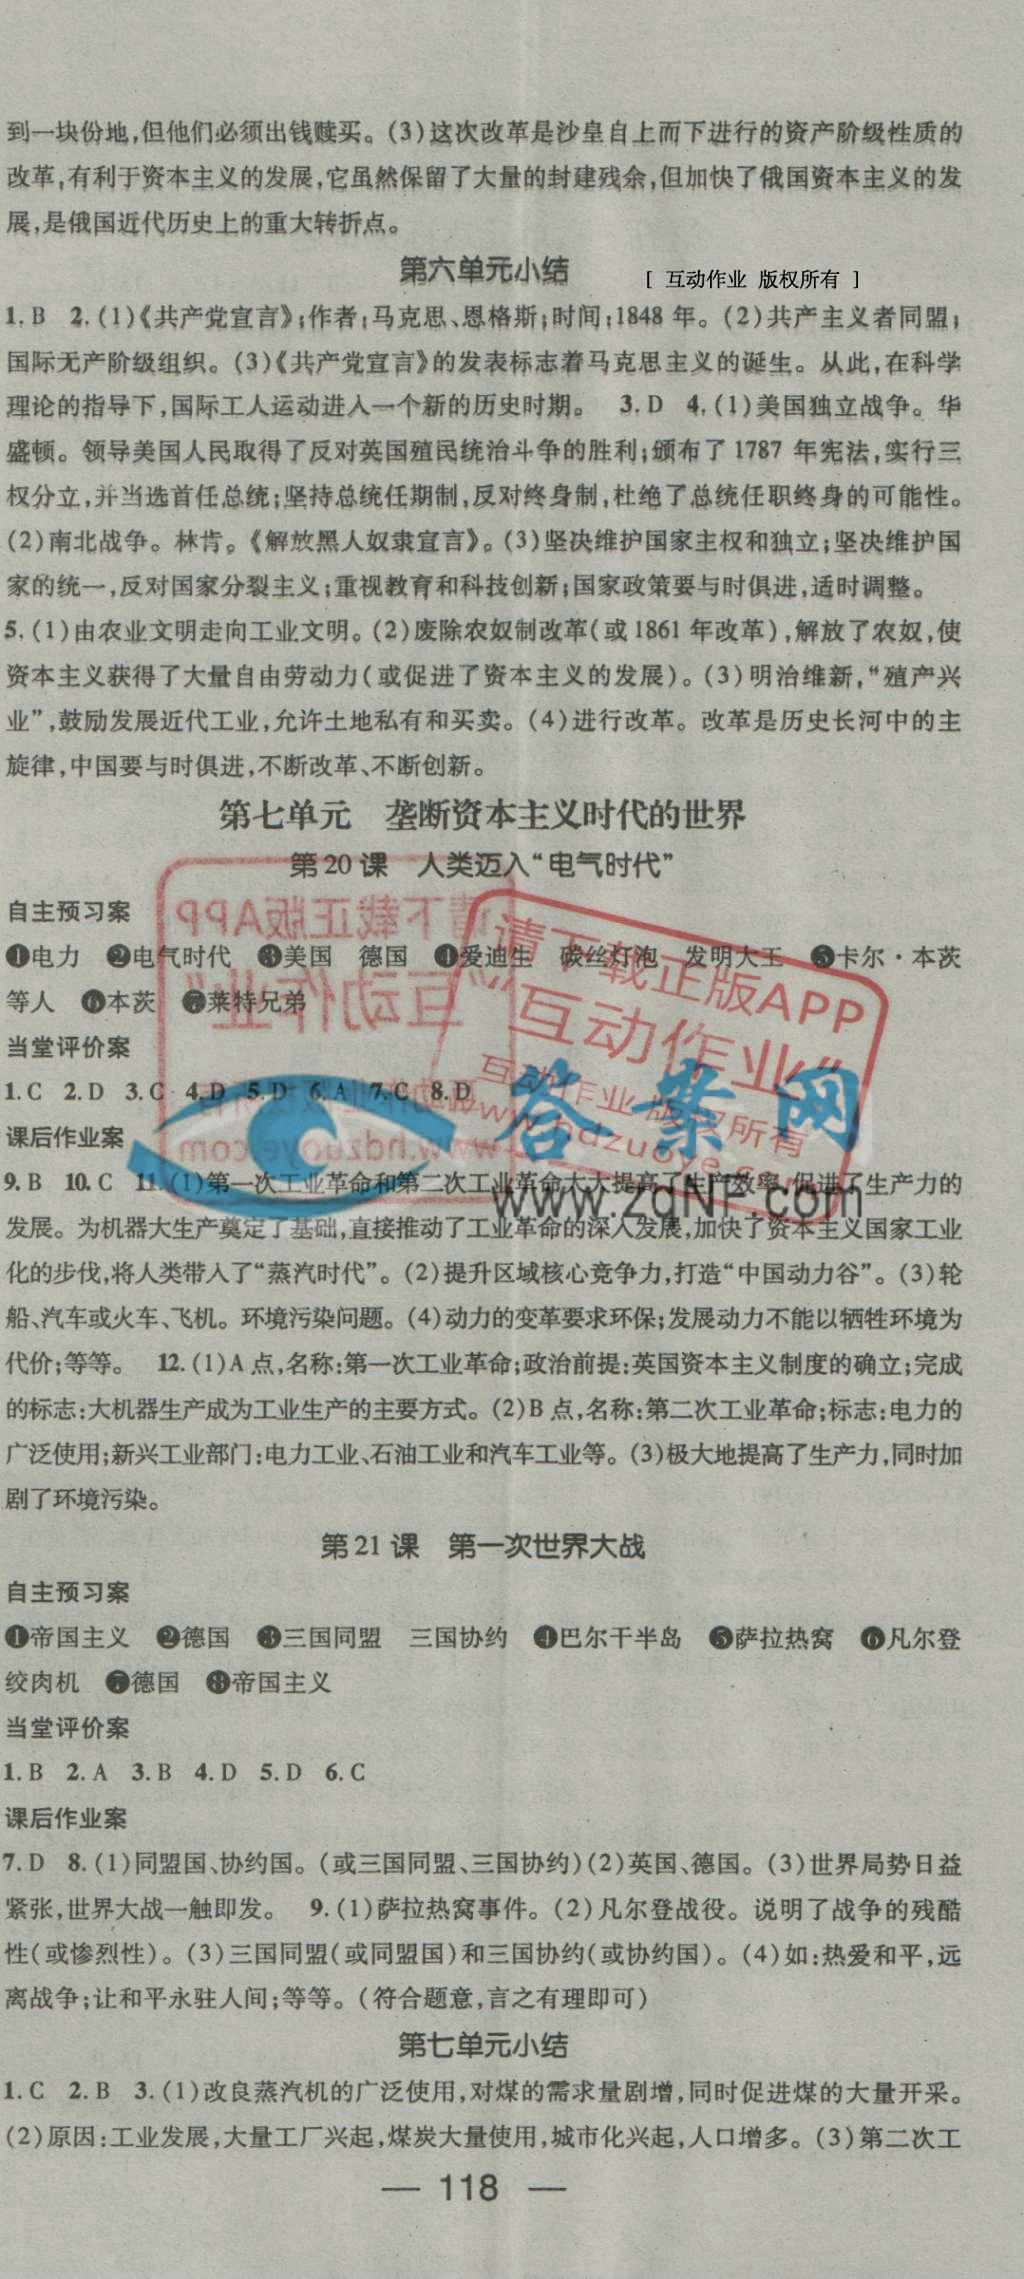 到一块份地,但他们必须出钱赎买。(3)这次改革是沙皇自上而下进行的资产阶级性质的
改革,有利于资本主义的发展,它虽然保留了大量的封建残余,但加快了俄国资本主义的发
展,是俄国近代历史上的重大转折点。
第六单元小结
[ 互动作业 版权所有 ]
1.B 2.(1)《共产党宣言》;作者:马克思、恩格斯;时间:1848年。(2)共产主义者同盟;
国际无产阶级组织。(3)《共产党宣言》的发表标志着马克思主义的诞生。从此,在科学
理论的指导下,国际工人运动进入一个新的历史时期。 3.D 4.(1)美国独立战争。华
盛顿。领导美国人民取得了反对英国殖民统治斗争的胜利;颁布了1787年宪法,实行三
权分立,并当选首任总统;坚持总统任期制,反对终身制,杜绝了总统任职终身的可能性。
(2)南北战争。林肯。《解放黑人奴隶宣言》。(3)坚决维护国家主权和独立;坚决维护国
家的统一,反对国家分裂主义;重视教育和科技创新;国家政策要与时俱进,适时调整。
5.(1)由农业文明走向工业文明。(2)废除农奴制改革(或1861年改革),解放了农奴,使
资本主义获得了大量自由劳动力(或促进了资本主义的发展)。(3)明治维新,“殖产兴
业”,鼓励发展近代工业,允许土地私有和买卖。(4)进行改革。改革是历史长河中的主
旋律,中国要与时俱进,不断改革、不断创新。
第七单元 垄断资本主义时代的世界
第20课 人类迈入“电气时代”
自主预习案
❶电力 ❷电气时代 ❸美国 德国 ❹爱迪生 碳丝灯泡 发明大王 ❺卡尔·本茨
等人 ❻本茨 ❼莱特兄弟
当堂评价案
1.C 2.D 3.C 4.D 5.D 6.A 7.C 8.D
课后作业案
9.B 10.C 11.(1)第一次工业革命和第二次工业革命大大提高了生产效率,促进了生产力的
发展。为机器大生产奠定了基础,直接推动了工业革命的深入发展,加快了资本主义国家工业
化的步伐,将人类带入了“蒸汽时代”。(2)提升区域核心竞争力,打造“中国动力谷”。(3)轮
船、汽车或火车、飞机。环境污染问题。(4)动力的变革要求环保;发展动力不能以牺牲环境为
代价;等等。 12.(1)A点,名称:第一次工业革命;政治前提:英国资本主义制度的确立;完成
的标志:大机器生产成为工业生产的主要方式。(2)B点,名称:第二次工业革命;标志:电力的
广泛使用;新兴工业部门:电力工业、石油工业和汽车工业等。(3)极大地提高了生产力,同时加
剧了环境污染。
请下载正版APP
互动作业
互动作业 版权所有
www.hdzuoye.com
答案网
www.zqNF.com
第21课 第一次世界大战
自主预习案
❶帝国主义 ❷德国 ❸三国同盟 三国协约 ❹巴尔干半岛 ❺萨拉热窝 ❻凡尔登
绞肉机 ❼德国 ❽帝国主义
当堂评价案
1.B 2.A 3.B 4.D 5.D 6.C
课后作业案
7.D 8.(1)同盟国、协约国。(或三国同盟、三国协约)(2)英国、德国。(3)世界局势日益
紧张,世界大战一触即发。 9.(1)萨拉热窝事件。(2)凡尔登战役。说明了战争的残酷
性(或惨烈性)。(3)三国同盟(或同盟国)和三国协约(或协约国)。(4)如:热爱和平,远
离战争;让和平永驻人间;等等。(符合题意,言之有理即可)
第七单元小结
1.C 2.B 3.(1)改良蒸汽机的广泛使用,对煤的需求量剧增,同时促进煤的大量开采。
(2)原因:工业发展,大量工厂兴起,煤炭大量使用,城市化兴起,人口增多。(3)第二次工
— 118 —